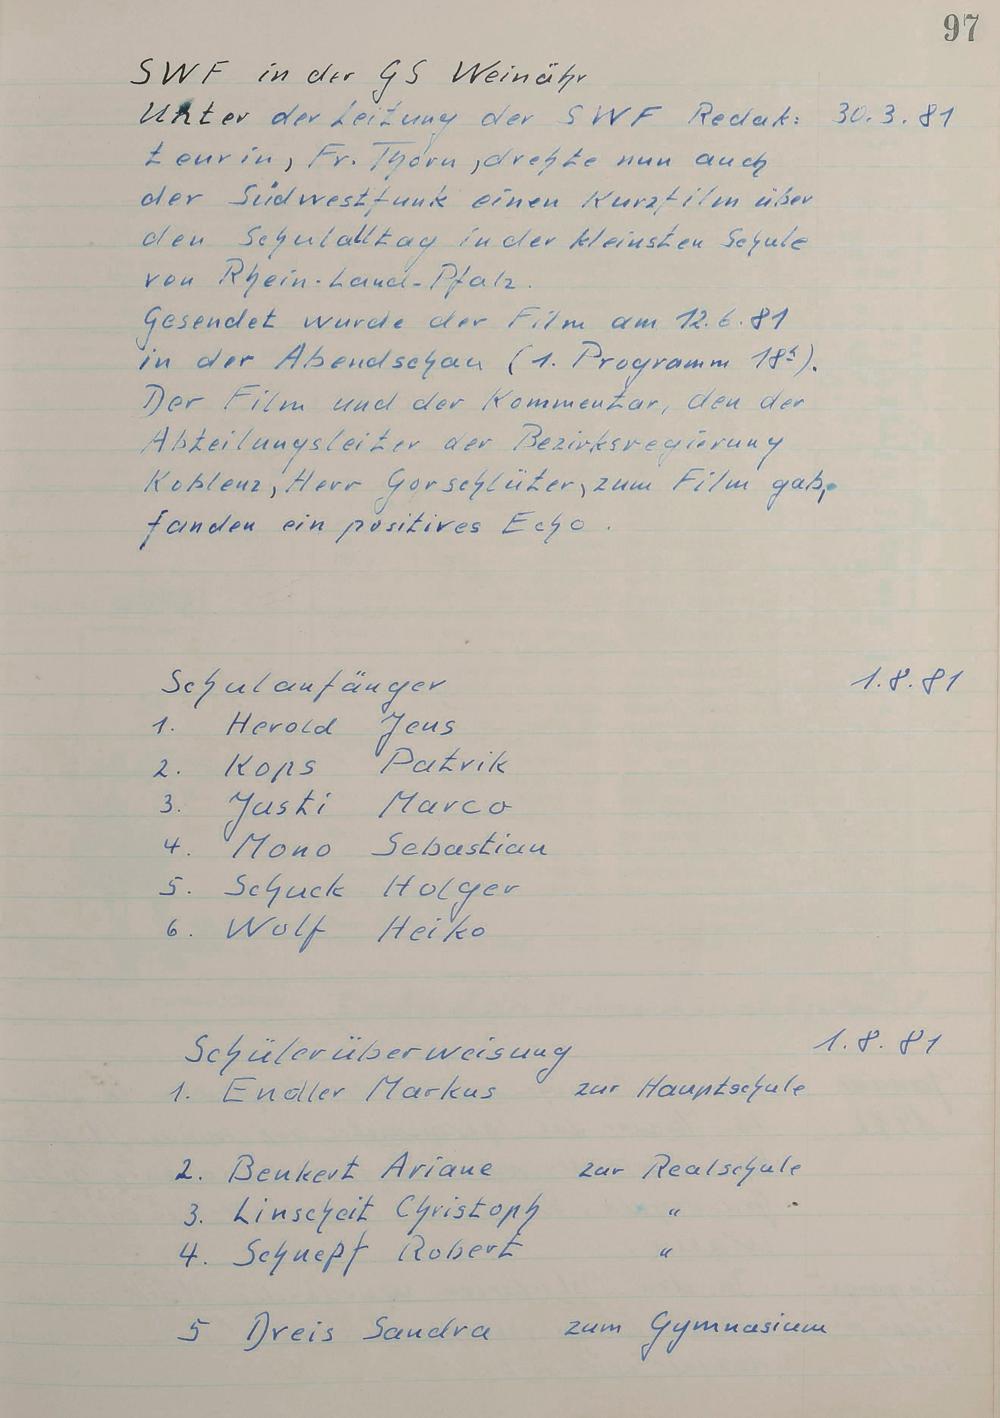 97
SWF in der GS Weinähr
Unter der Leitung der SWF Redak: 30.3.81
teurin, Fr. Thorn, drehte nun auch
der Südwestfunk einen Kurzfilm über
den Schulalltag in der kleinsten Schule
von Rhein-Land-Pfalz.
Gesendet wurde der Film am 12.6.81
in der Abendschau (1. Programm 18h).
Der Film und der Kommentar, den der
Abteilungsleiter der Bezirksregierung
Koblenz, Herr Gorschlüter, zum Film gab,
fanden ein positives Echo.
Schulanfänger 1.8.81
1. Herold Jens
2. Kops Patrik
3. Justi Marco
4. Mono Sebastian
5. Schuck Holger
6. Wolf Heiko
Schülerüberweisung 1.8.81
1. Endler Markus zur Hauptschule
2. Benkert Ariane zur Realschule
3. Linscheit Christoph "
4. Schnepf Robert "
5 Dreis Sandra zum Gymnasium